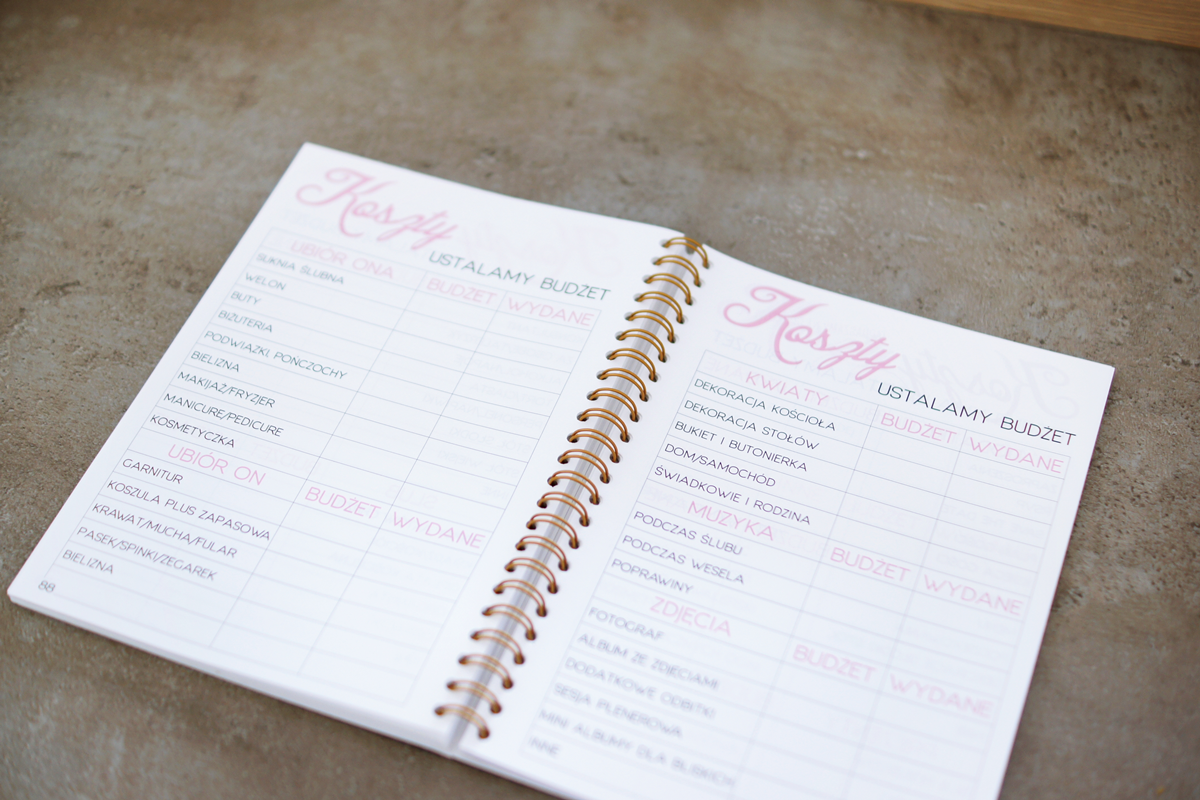 Koszty
USTALAMY BUDŻET
UBIÓR ONA BUDŻET WYDANE
SUKNIA ŚLUBNA
WELON
BUTY
BIŻUTERIA
PODWIĄZKI, POŃCZOCHY
BIELIZNA
MAKIJAŻ/FRYZJER
MANICURE/PEDICURE
KOSMETYCZKA
UBIÓR ON BUDŻET WYDANE
GARNITUR
KOSZULA PLUS ZAPASOWA
KRAWAT/MUCHA/FULAR
PASEK/SPINKI/ZEGAREK
BIELIZNA
88
Koszty
USTALAMY BUDŻET
KWIATY BUDŻET WYDANE
DEKORACJA KOŚCIOŁA
DEKORACJA STOŁÓW
BUKIET I BUTONIERKA
DOM/SAMOCHÓD
ŚWIADKOWIE I RODZINA
MUZYKA BUDŻET WYDANE
PODCZAS ŚLUBU
PODCZAS WESELA
POPRAWINY
ZDJĘCIA BUDŻET WYDANE
FOTOGRAF
ALBUM ZE ZDJĘCIAMI
DODATKOWE ODBITKI
SESJA PLENEROWA
MINI ALBUMY DLA BLISKICH
INNE